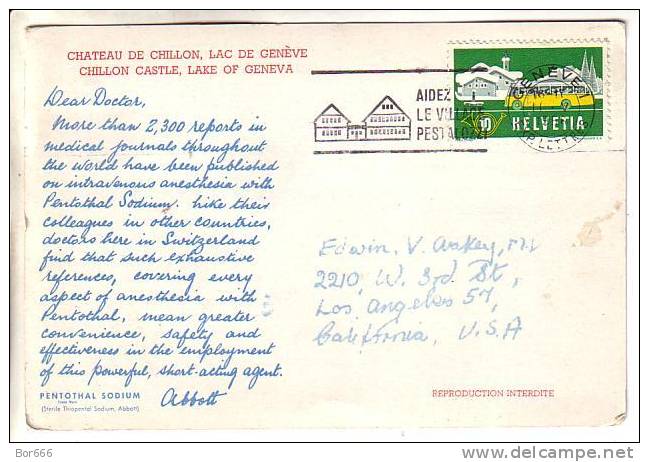 CHATEAU DE CHILLON, LAC DE GENÈVE
CHILLON CASTLE, LAKE OF GENEVA
Dear Doctor,
More than 2,300 reports in
medical journals throughout
the world have been published
on intravenous anesthesia with
Pentothal Sodium. Like their
colleagues in other countries,
doctors here in Switzerland
find that such exhaustive
references, covering every
aspect of anesthesia with
Pentothal, mean greater
convenience, safety and
effectiveness in the employment
of this powerful, short-acting agent.
Abbott
PENTOTHAL SODIUM
(Sterile Thiopental Sodium, Abbott)
AIDEZ
LE VILLAGE
PESTALOZZI
GENEVE 1
LETTR
10 HELVETIA
Edwin. V. 
2210, W. 3rd St,
Los Angeles 57,
California, U.S.A
REPRODUCTION INTERDITE
Bor666
delcampe.net